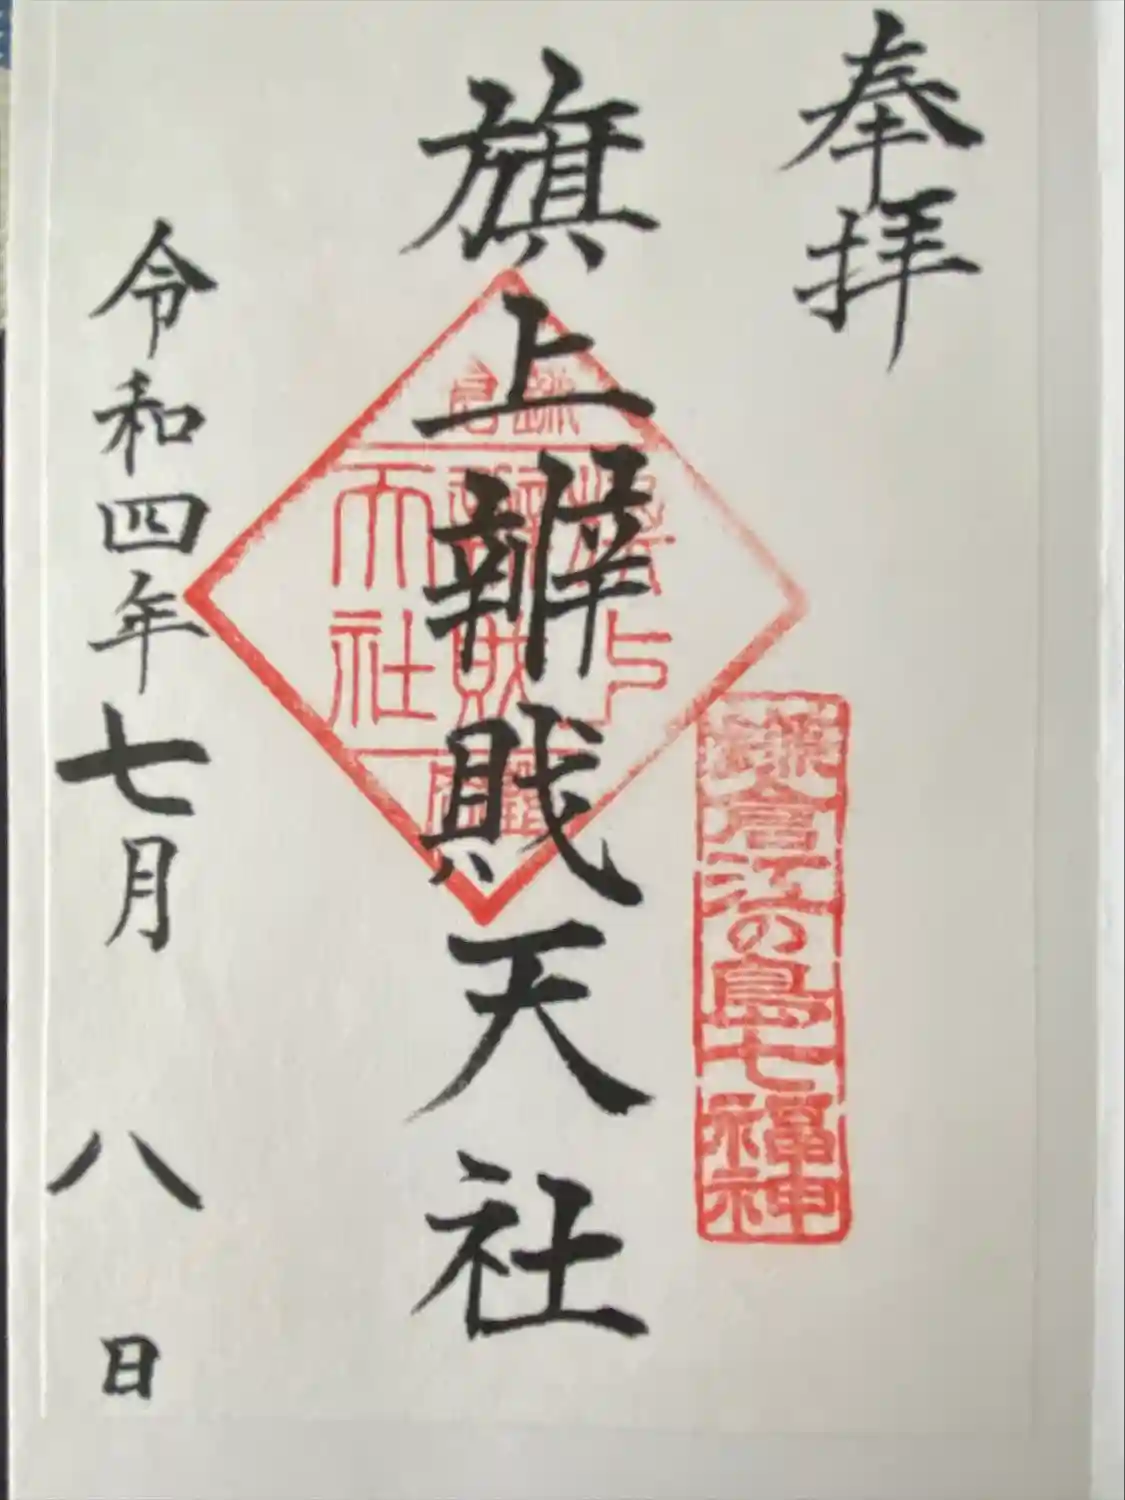 奉拝
鎌倉江の島七福神
旗上辨財天社
令和四年七月八日